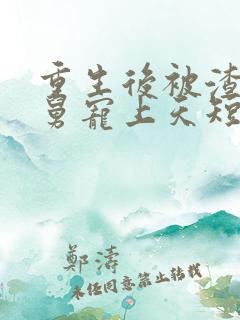 重生後被渣
舅寵上天短
鄭濤
未经同意禁止转载